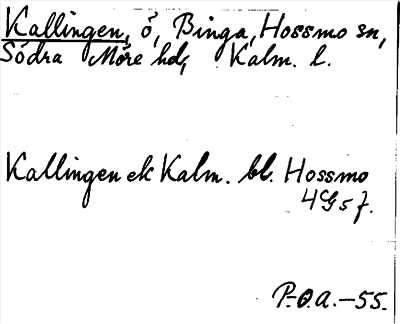 Kallingen, ö, Binga, Hossmo sn,
Södra Möre hd, Kalm. l.
Kallingen ek Kalm. bl. Hossmo
4G5f.
P.-O.A.-55.